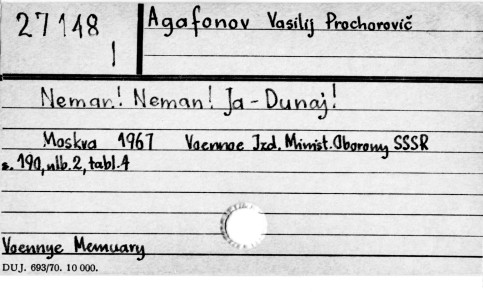 27148
I
Agafonov Vasilij Prochorovič
Neman! Neman! Ja - Dunaj!
Moskva 1967 Voennoe Izd. Minist. Oborony SSSR
s. 190, nlb. 2, tabl. 4
Voennye Memuary
DUJ. 693/70. 10 000.